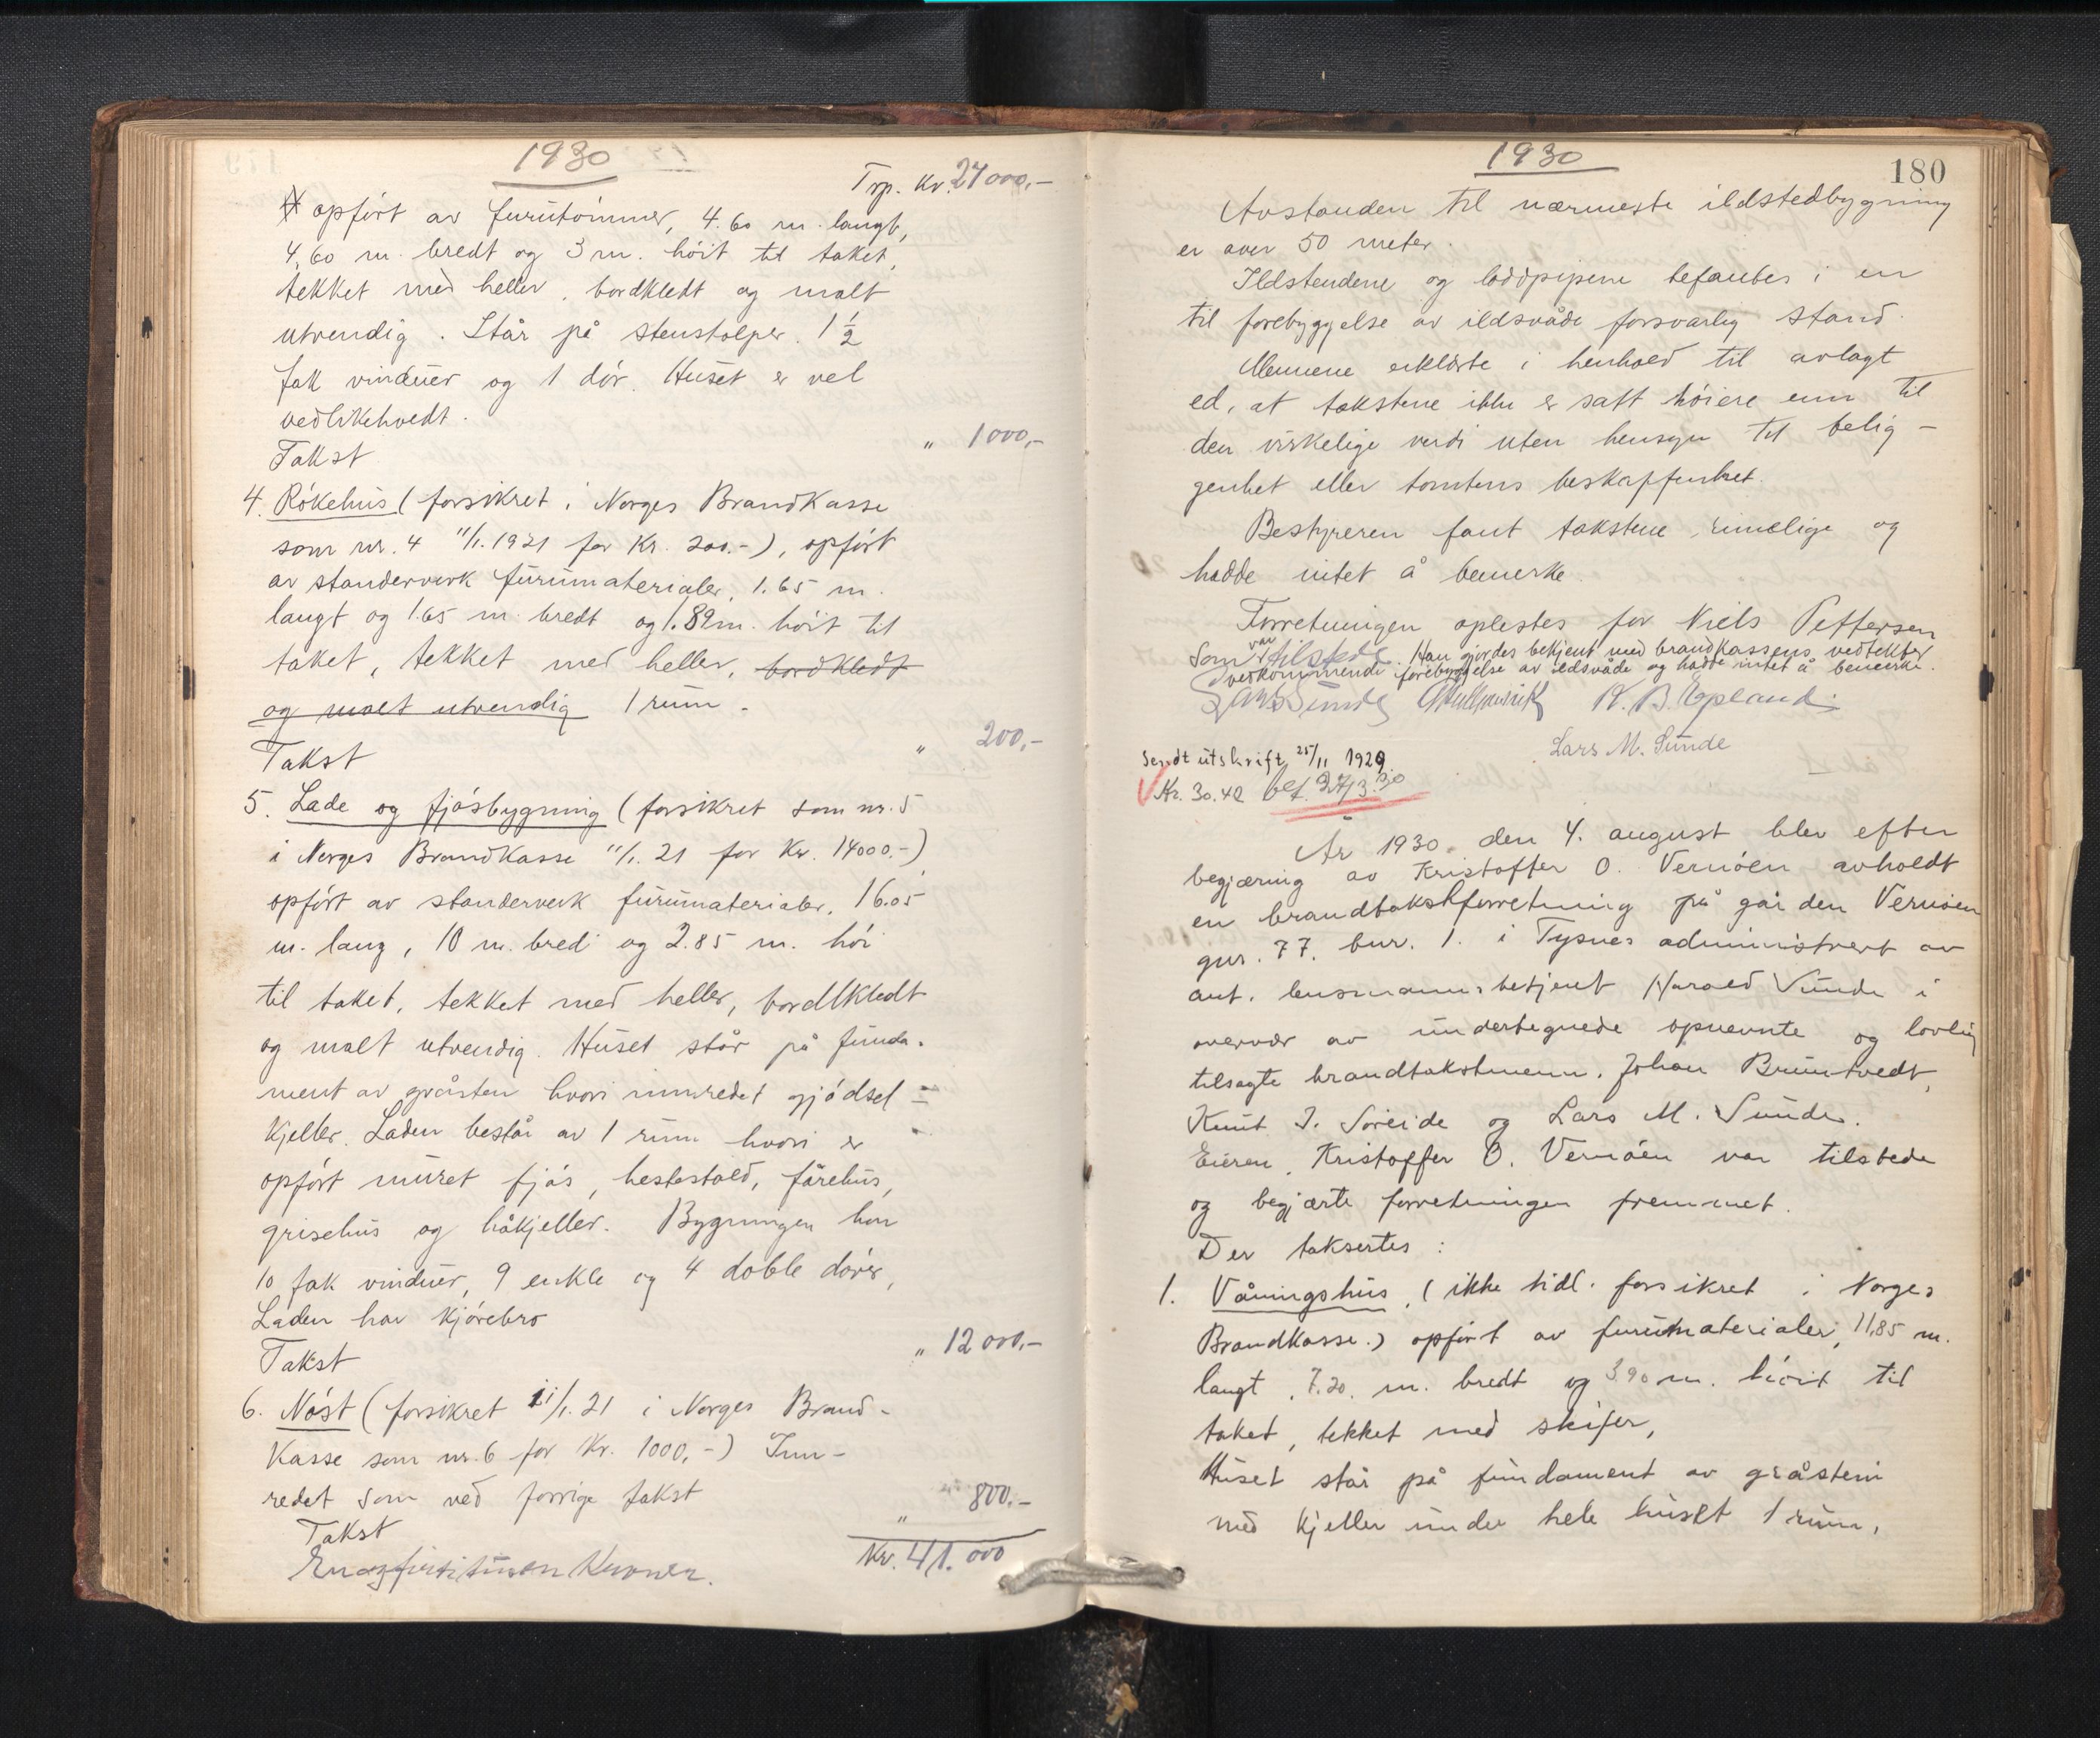 1930
Trp. Kr. 27000,-
opført av furutømmer, 4.60 m. langt,
4,60 m. bredt og 3 m. höit til taket,
tekket med heller, bordkledt og malt
utvendig. Står på stenstolper. 1 1/2
fak vinduer og 1 dör. Huset er vel
vedlikehvedt.
Takst " 1000,-
4. Rökehus (forsikret i Norges BrandKasse
som nr. 4 11/1. 1921 for Kr. 200.-), opfört
av standerverk furumaterialer, 1.65 m.
langt og 1.65 m. bredt og 1.89 m. höit til
taket, tekket med heller, bordkledt
og malt utvendig 1 rum.
Takst " 200,-
5. Lade og fjösbygning (forsikret som nr. 5
i Norges BrandKasse 11/1. 21 for Kr. 14000.-)
opfört av standerverk furumaterialer, 16.05
m. lang, 10 m. bred og 2.85 m. höi
til taket, tekket med heller, bordkledt
og malt utvendig. Huset står på funda-
ment av gråsten hvori innredet gjödsel=
kjeller. Laden består av 1 rum hvori er
opfört muret fjös, hestestald, fårehus,
grisehus og håkjeller. Bygningen har
10 fak vinduer, 9 enkle og 4 doble dörer,
Laden har kjörebro
Takst " 12000,-
6. Nöst (forsikret 11/1. 21 i Norges Brand-
Kasse som nr. 6 for Kr. 1000,-) Inn-
redet som ved forrige takst
Takst " 800.-
Kr. 41.000
Enogfirtitusen Kroner.
1930
180
Avstanden til nærmeste ildstedbygning
er over 50 meter.
Ildstendene og loddpipene befantes i en
til forebyggelse av ildsvåde forsvarlig stand.
Mennene erklærte i henhold til avlagt
ed, at takstene ikke er satt höiere enn til
den virkelige verdi uten hensyn til belig-
genhet eller tomtens beskaffenhet.
Bestyreren fant takstene rimelige og
hadde intet å bemerke.
Forretningen oplestes for Niels Pettersen
som var tilstede. Han gjordes bekjent med brandkassens vedtekter
vedkommende forebyggelse av ildsvåde og hadde intet å bemerke.
Lars Sunde K. B. Epland
Lars M. Sunde
Sendt utskrift 25/11 1929.
Kr. 30.42 bet. 27/3.30
År 1930 den 4. august blev efter
begjæring av Kristoffer O. Vernöen avholdt
en brandtakstforretning på gården Vernöen
gnr. 77. bnr. 1. i Tysnes administrert av
aut. lensmannsbetjent Harald Sunde i
overvær av undertegnede opnevnte og lovlig
tilsagte brandtakstmenn, Johan Bruntvedt,
Knut J. Söreide og Lars M. Sunde.
Eieren, Kristoffer O. Vernöen var tilstede
og begjærte forretningen fremmet.
Der taksertes:
1. Våningshus, (ikke tidl. forsikret i Norges
Brandkasse.) opfört av furumaterialer, 11,85 m.
langt, 7.20. m. bredt og 3.90 m. höit til
taket, tekket med skifer,
Huset står på fundament av gråstein
med kjeller under hele huset 1 rum,